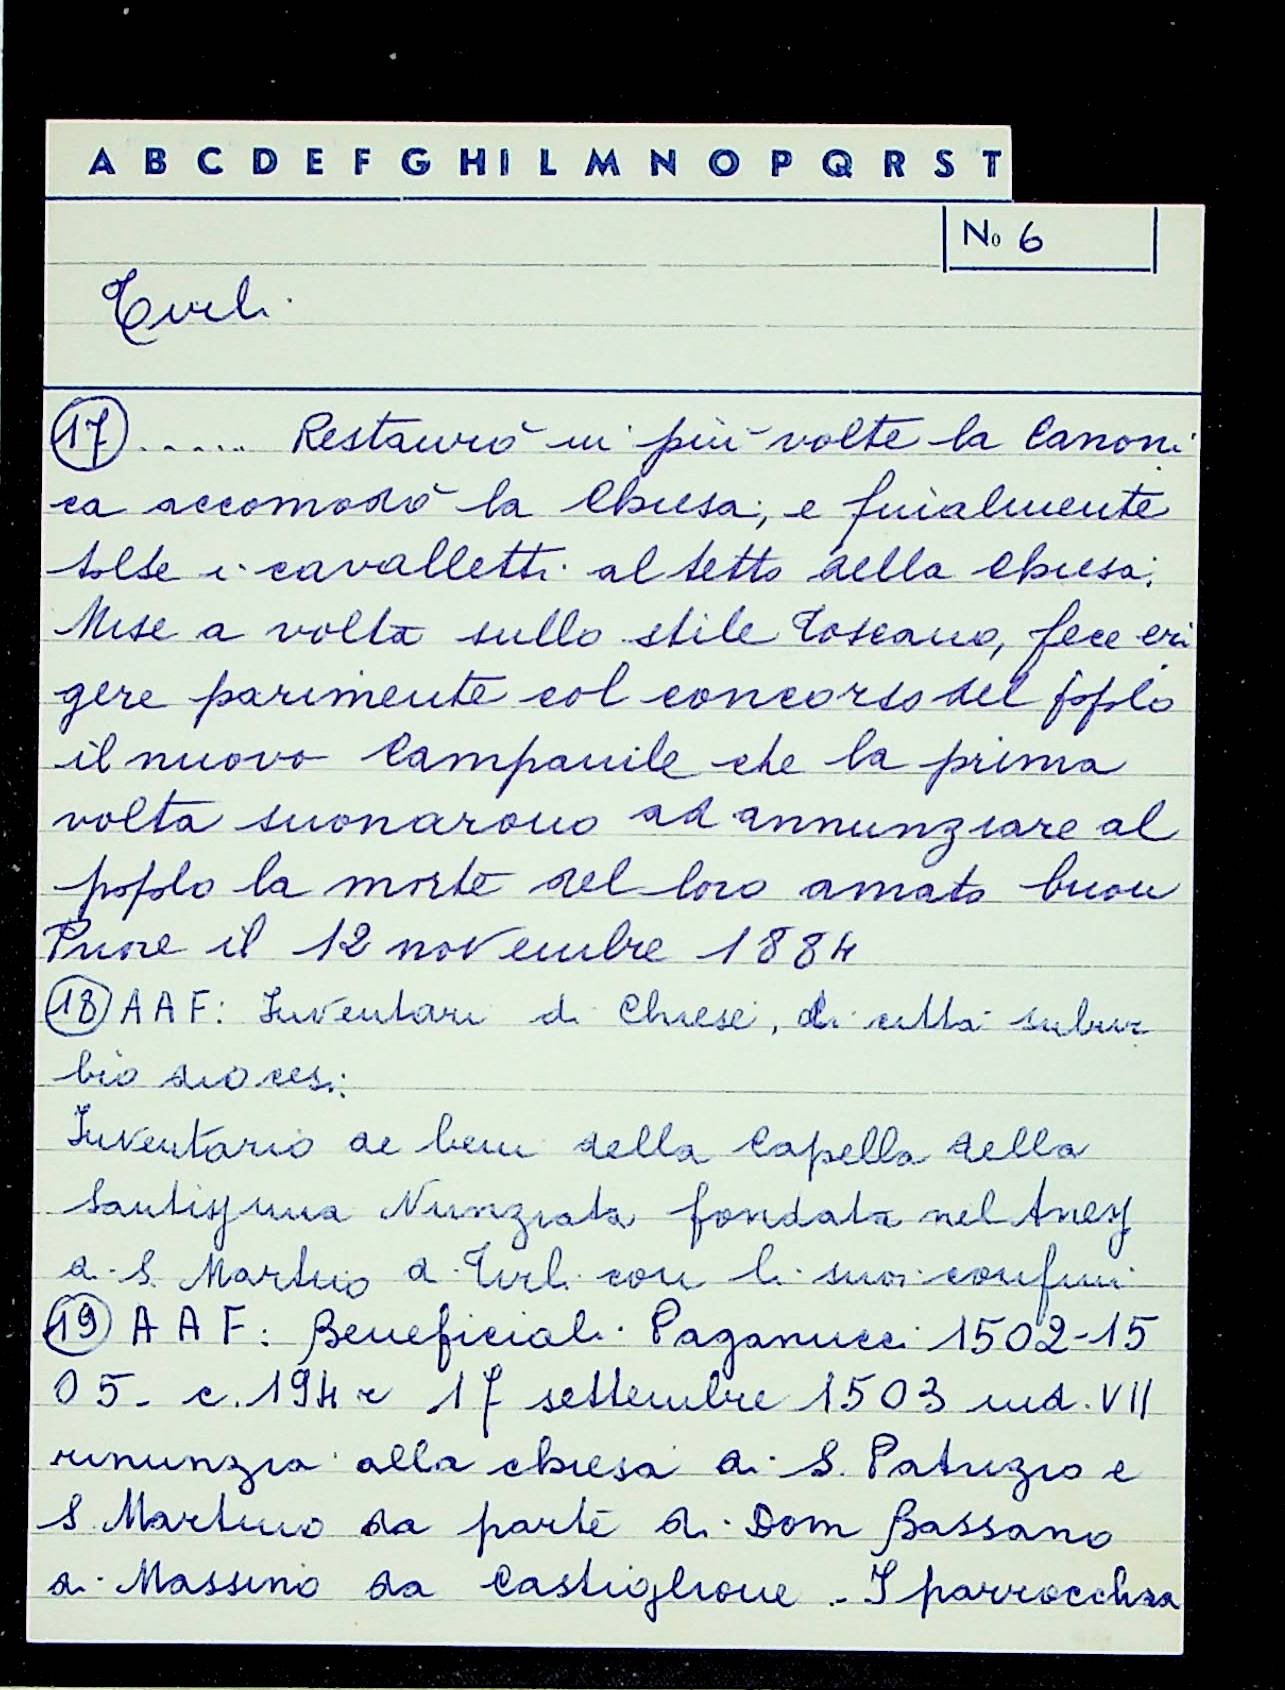 A B C D E F G H I L M N O P Q R S T
No 6
Tirli
17 ..... Restaurò in più volte la Canoni
ca accomodò la Chiesa, e finialmente
tolse i cavalletti al tetto della Chiesa.
Mise a volta sullo stile toscano, fece eri
gere parimente col concorso del popolo
il nuovo Campanile che la prima
volta suonarono ad annunziare al
popolo la morte del loro amato buon
Priore il 12 novembre 1884
18 AAF: Inventari di Chiese, di città subur
bio diocesi:
Inventario de beni della Capella della
Santissima Nunziata fondata nel
di S. Martino a Tirli con li suoi confini
19 AAF: Beneficiali Paganucci 1502-15
05. c. 194 r 17 settembre 1503 ind. VII
rinunzia alla chiesa di S. Patrizio e
S. Martino da parte di Dom Bassano
di Massimo da Castiglione. I parrocchia